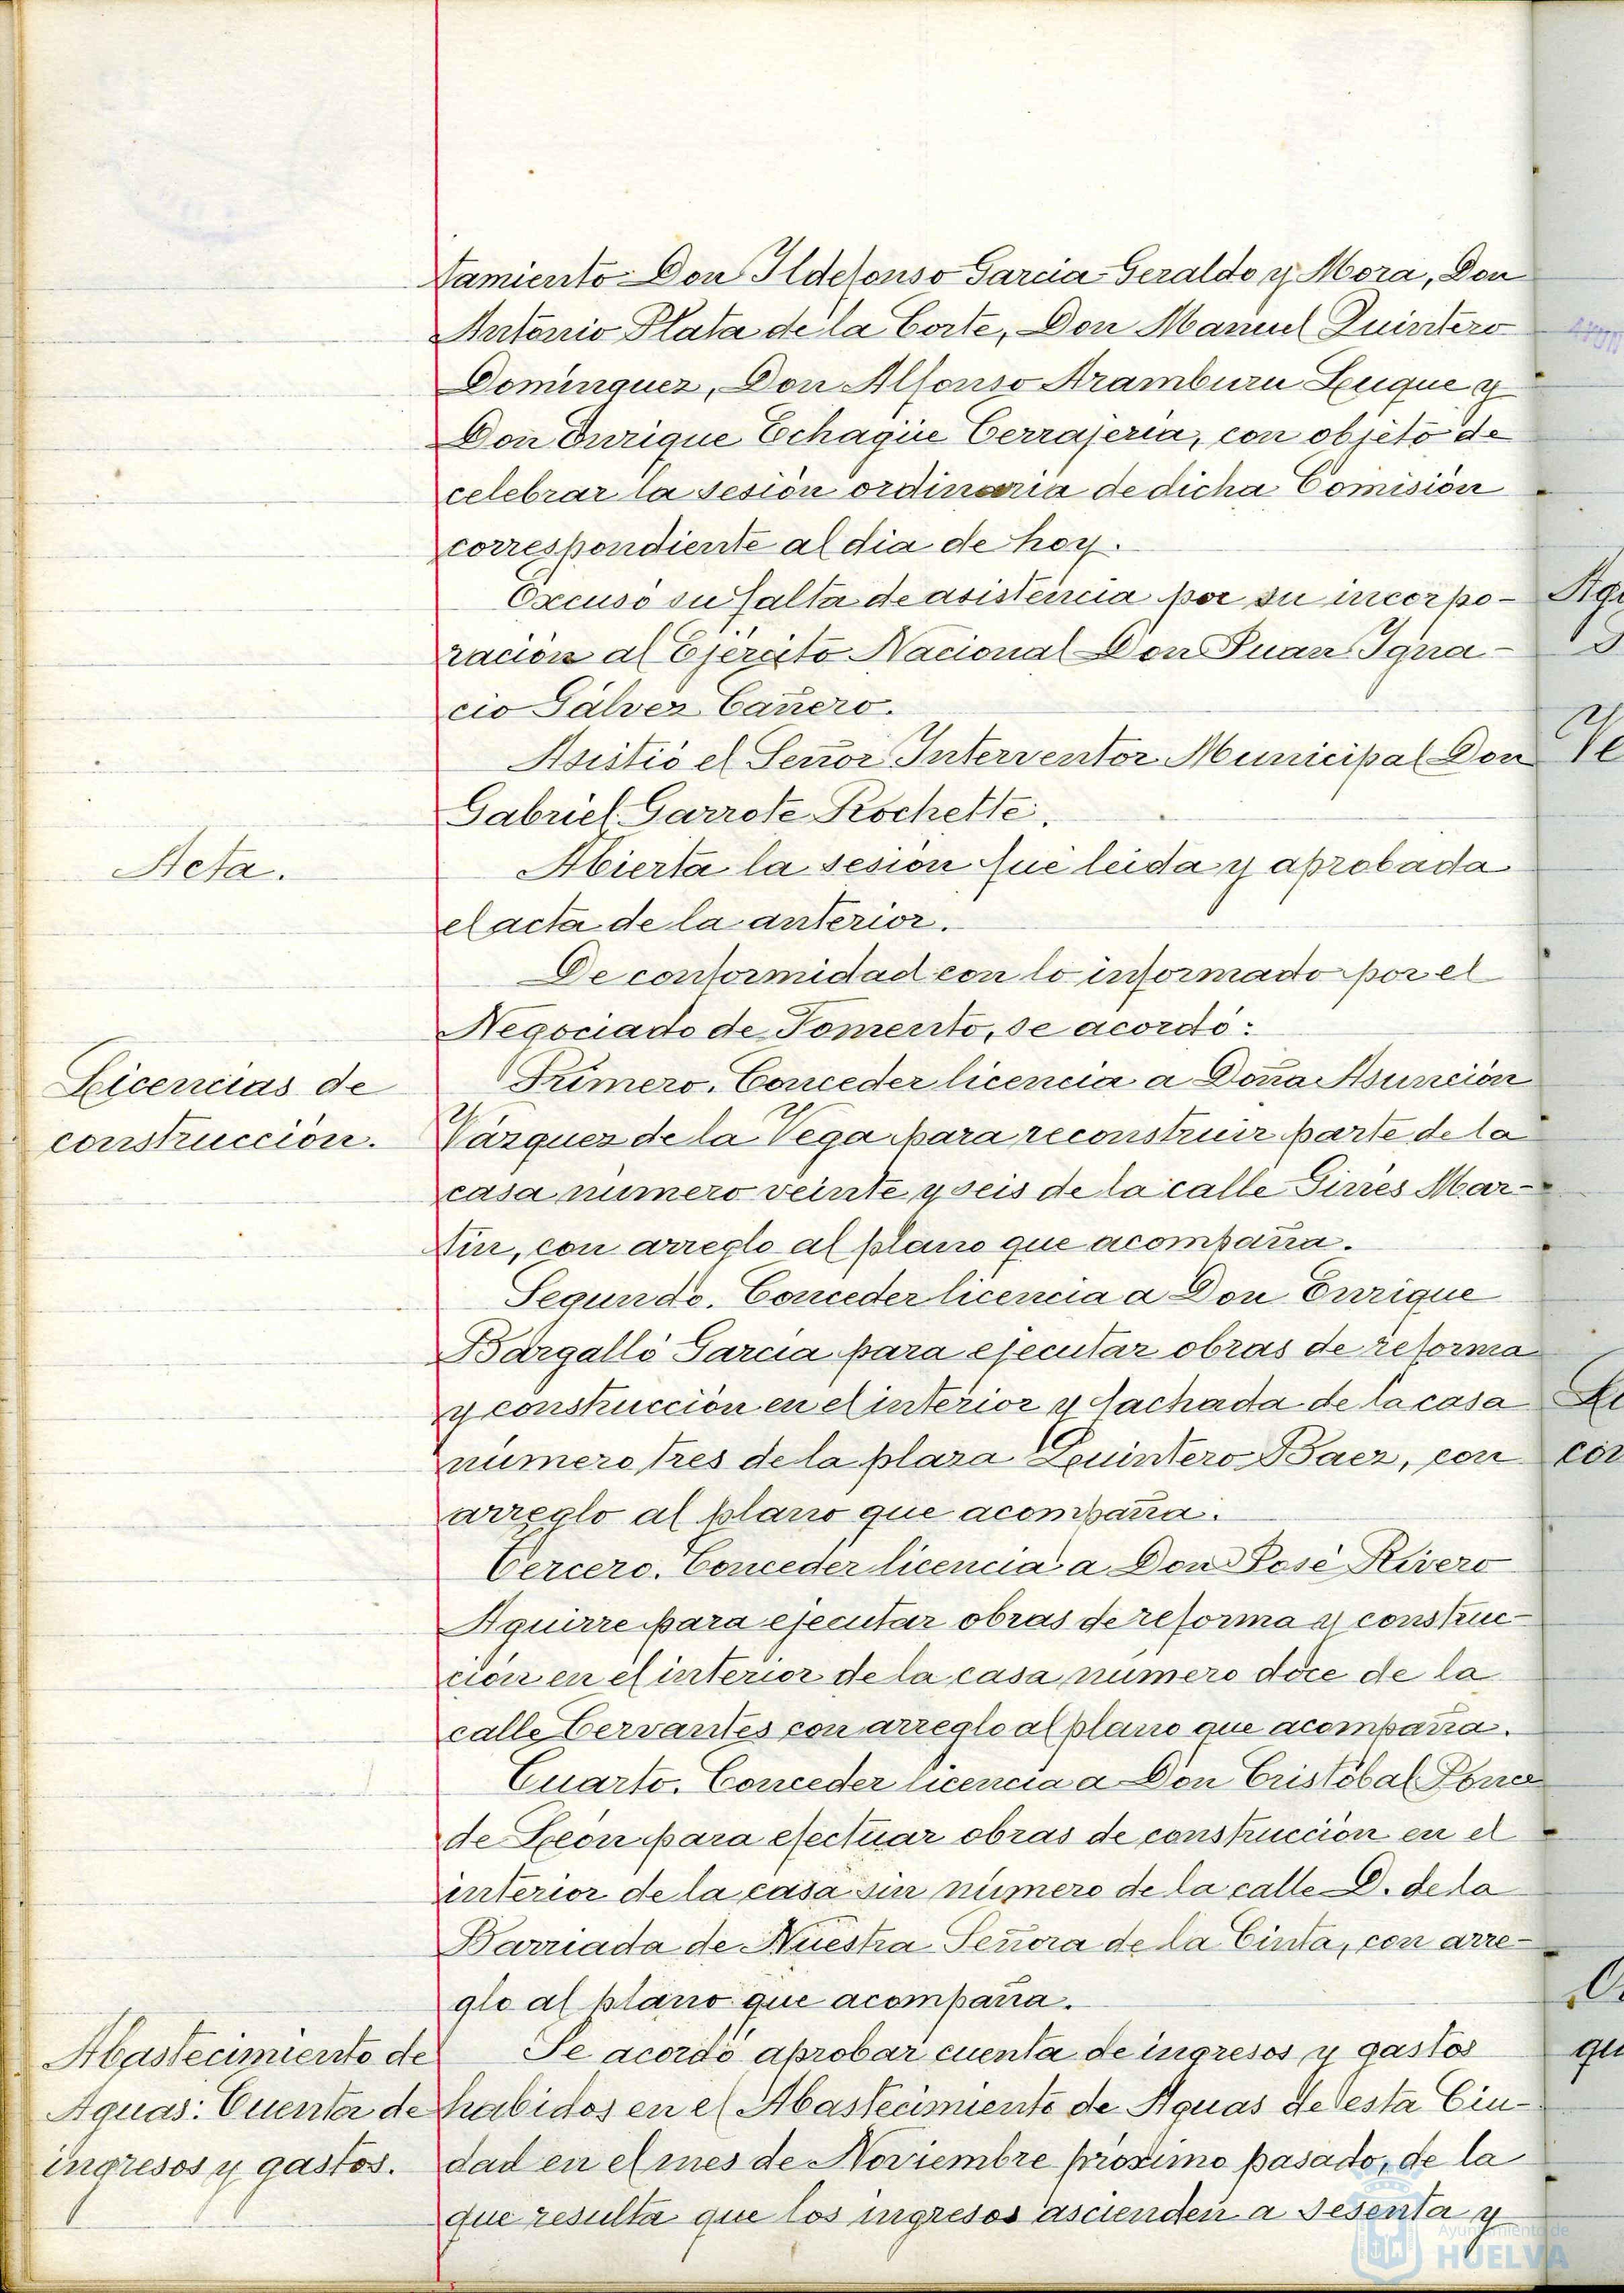 tamiento Don Ildefonso Garcia Geraldo y Mora, Don
Antonio Plata de la Corte, Don Manuel Quintero
Dominguez, Don Alfonso Aramburu Luque y
Don Enrique Echagüe Cerrajeria, con objeto de
celebrar la sesión ordinaria de dicha Comisión
correspondiente al dia de hoy.
Excusó su falta de asistencia por su incorpo-
ración al Ejército Nacional Don Juan Igna-
cio Gálvez Cañero.
Asistió el Señor Interventor Municipal Don
Gabriel Garrote Rochette.
Acta.
Abierta la sesión fué leida y aprobada
el acta de la anterior.
De conformidad con lo informado por el
Negociado de Fomento, se acordó:
Licencias de
construcción.
Primero. Conceder licencia a Doña Asunción
Vázquez de la Vega para reconstruir parte de la
casa número veinte y seis de la calle Ginés Mar-
tin, con arreglo al plano que acompaña.
Segundo. Conceder licencia a Don Enrique
Bargalló Garcia para ejecutar obras de reforma
y construcción en el interior y fachada de la casa
número tres de la plaza Quintero Baez, con
arreglo al plano que acompaña.
Tercero. Conceder licencia a Don José Rivero
Aguirre para ejecutar obras de reforma y construc-
ción en el interior de la casa número doce de la
calle Cervantes con arreglo al plano que acompaña.
Cuarto. Conceder licencia a Don Cristóbal Ponce
de León para efectuar obras de construcción en el
interior de la casa sin número de la calle D. de la
Barriada de Nuestra Señora de la Cinta, con arre-
glo al plano que acompaña.
Abastecimiento de
Aguas: Cuenta de
ingresos y gastos.
Se acordó aprobar cuenta de ingresos y gastos
habidos en el Abastecimiento de Aguas de esta Ciu-
dad en el mes de Noviembre próximo pasado, de la
que resulta que los ingresos ascienden a sesenta y
Ayuntamiento de
HUELVA